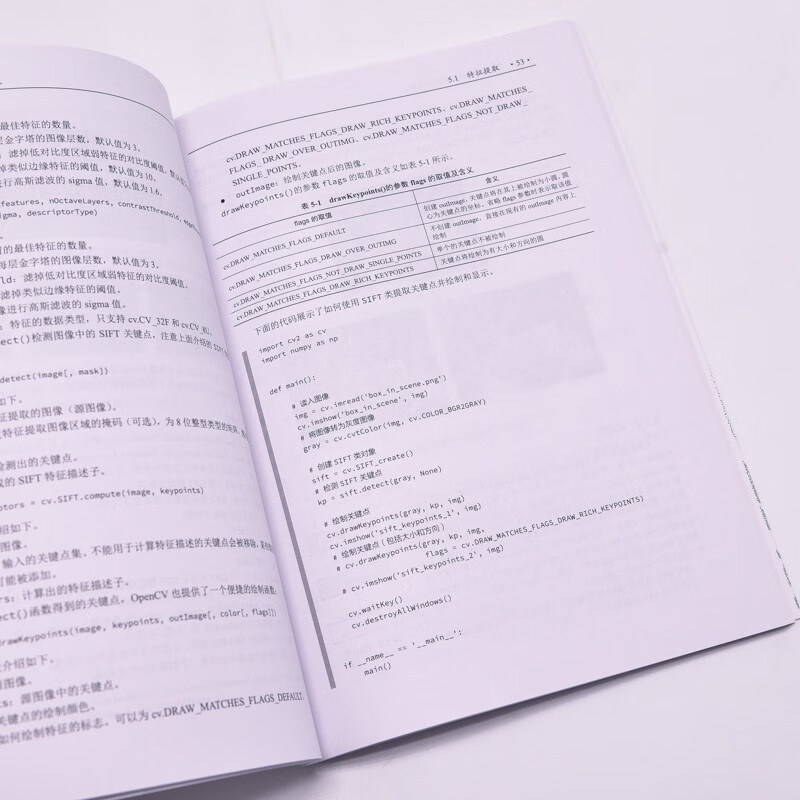 最佳特征的数量。
层金字塔的图像层数，默认值为 3。
：滤掉低对比度区域弱特征的对比度阈值，默认
掉类似边缘特征的阈值，默认为 10。
进行高斯滤波的 sigma 值，默认为 1.6。
features, nOctaveLayers, contrastThreshold,
igma, descriptorType)
的最佳特征的数量。
每层金字塔的图像层数，默认值为 3。
ld：滤掉低对比度区域弱特征的对比度阈值。
滤掉类似边缘特征的阈值。
像进行高斯滤波的 sigma 值。
：特征的数据类型，只支持 cv.CV_32F 和 cv.CV_8U。
ect()检测图像中的 SIFT 关键点，注意上面介绍的 SIFT
detect(image[, mask])
如下。
征提取的图像（源图像）。
特征提取图像区域的掩码（可选），为 8 位整型类型的矩阵，
检测出的关键点。
的 SIFT 特征描述子。
ptors = cv.SIFT.compute(image, keypoints)
绍如下。
图像。
输入的关键点集，不能用于计算特征描述的关键点会被移除，
可能被添加。
rs：计算出的特征描述子。
ect()函数得到的关键点，OpenCV 也提供了一个便捷的绘制函数。
drawKeypoints(image, keypoints, outImage[, color[, flags]])
介绍如下。
图像。
ts：源图像中的关键点。
关键点的绘制颜色。
如何绘制特征的标志，可以为 cv.DRAW_MATCHES_FLAGS_DEFAULT、
5.1 特征提取 ·53·
cv.DRAW_MATCHES_FLAGS_DRAW_RICH_KEYPOINTS、cv.DRAW_MATCHES_
FLAGS_DRAW_OVER_OUTIMG、cv.DRAW_MATCHES_FLAGS_NOT_DRAW_
SINGLE_POINTS。
● outImage：绘制关键点后的图像。
drawKeypoints()的参数 flags 的取值及含义如表 5-1 所示。
表 5-1 drawKeypoints()的参数 flags 的取值及含义
flags 的取值 含义
cv.DRAW_MATCHES_FLAGS_DEFAULT 创建 outImage，关键点将在其上被绘制为小圆，圆
心为关键点的坐标。省略 flags 参数时表示取该值
cv.DRAW_MATCHES_FLAGS_DRAW_OVER_OUTIMG 不创建 outImage，直接在现有的 outImage 内容上
绘制
cv.DRAW_MATCHES_FLAGS_NOT_DRAW_SINGLE_POINTS 单个的关键点不被绘制
cv.DRAW_MATCHES_FLAGS_DRAW_RICH_KEYPOINTS 关键点将绘制为有大小和方向的圆
下面的代码展示了如何使用 SIFT 类提取关键点并绘制和显示。
import cv2 as cv
import numpy as np
def main():
# 读入图像
img = cv.imread('box_in_scene.png')
cv.imshow('box_in_scene', img)
# 将图像转为灰度图像
gray = cv.cvtColor(img, cv.COLOR_BGR2GRAY)
# 创建 SIFT 类对象
sift = cv.SIFT_create()
# 检测 SIFT 关键点
kp = sift.detect(gray, None)
# 绘制关键点
cv.drawKeypoints(gray, kp, img)
cv.imshow('sift_keypoints_1', img)
# 绘制关键点（包括大小和方向）
# cv.drawKeypoints(gray, kp, img,
flags = cv.DRAW_MATCHES_FLAGS_DRAW_RICH_KEYPOINTS)
# cv.imshow('sift_keypoints_2', img)
cv.waitKey()
cv.destroyAllWindows()
if __name__ == '__main__':
main()